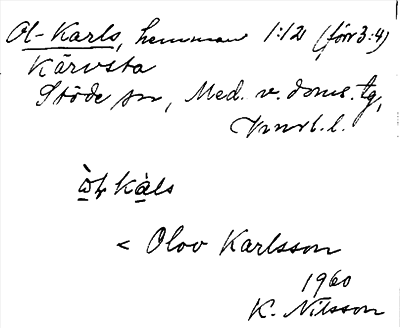 Ol-Karls, hemman 1:12 (förr 3:4)
Kärvsta
Stöde sn, Med. v. doms. tg,
Vnrl. l.
kals
< Olov Karlsson
1960
K. Nilsson